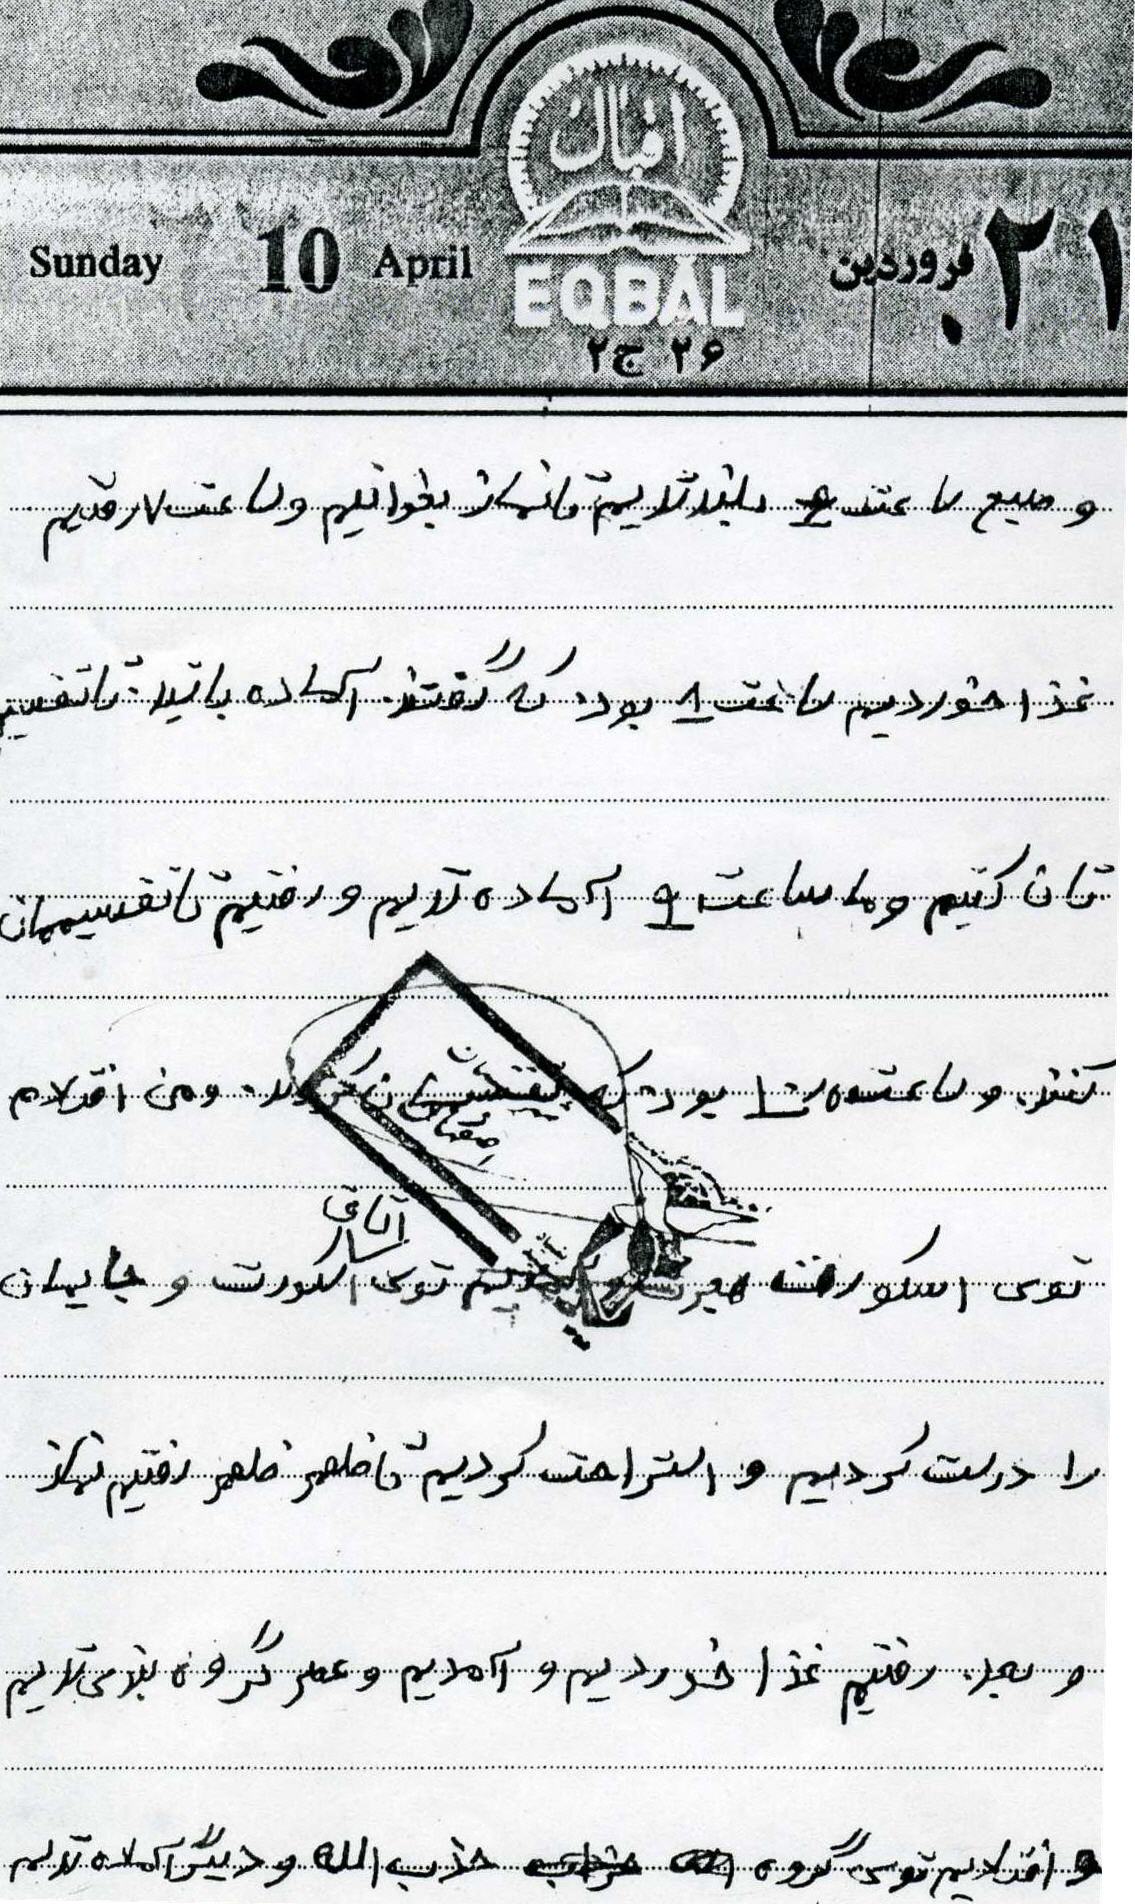 اقبال
Sunday 10 April
EQBAL
۲۱ فروردین
۲۶ ج۲
و صبح ساعت بلند شدیم تا نماز بخوانیم و ساعت ۷ رفتیم
غذا خوردیم ساعت ۸ بود که گفتند آماده باشید تا تقسیم
تان کنیم و ما ساعت ۹ آماده شدیم و رفتیم تا تقسیممان
کنند و ساعت ۱۰ بود که و من افتادم
توی اسکورت توی اسکورت و جایمان
را درست کردیم و استراحت کردیم تا ظهر ظهر رفتیم نماز
و بعد رفتیم غذا خوردیم و آمدیم و عصر گروه بندی شدیم
و افتادیم توی گروه حذب الله و دیگر آماده شدیم